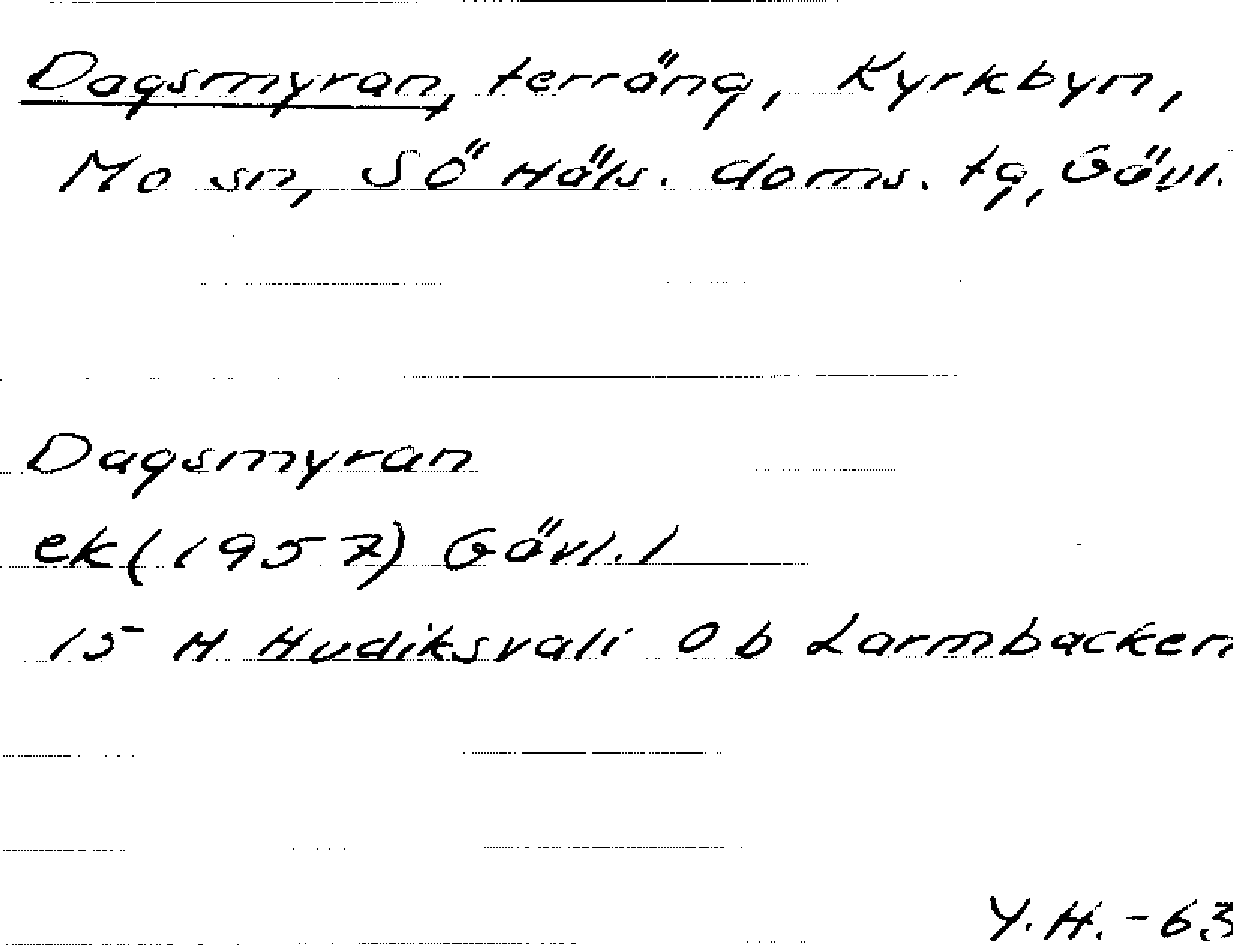 Dagsmyran, terräng, Kyrkbyn,
Mo sn, SÖ Häls. doms. tg, Gävl.
Dagsmyran
ek(1957) Gävl.l
15 H Hudiksvall 0 b Larmbacken
Y.H. -63